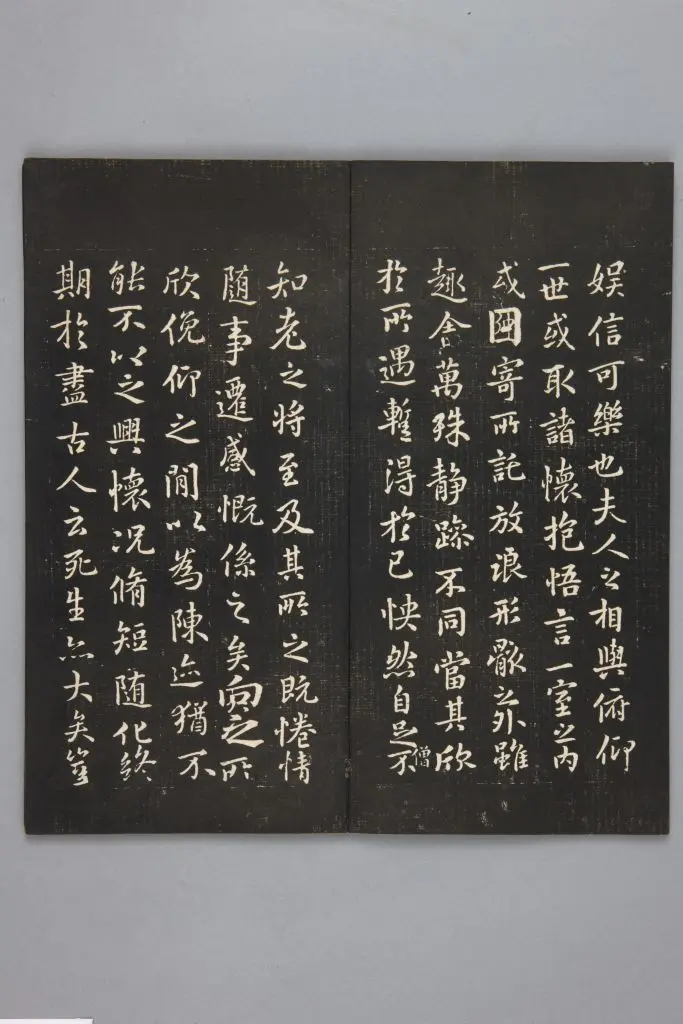 娯信可樂也夫人之相與俯仰
一世或取諸懷抱悟言一室之内
或因寄所託放浪形骸之外雖
趣舍萬殊静躁不同當其欣
於所遇暫得於己怏然自足不
僧
知老之將至及其所之既惓情
随事遷感慨係之矣向之所
欣俛仰之閒以為陳迹猶不
能不以之興懷況脩短随化終
期於盡古人云死生亦大矣豈